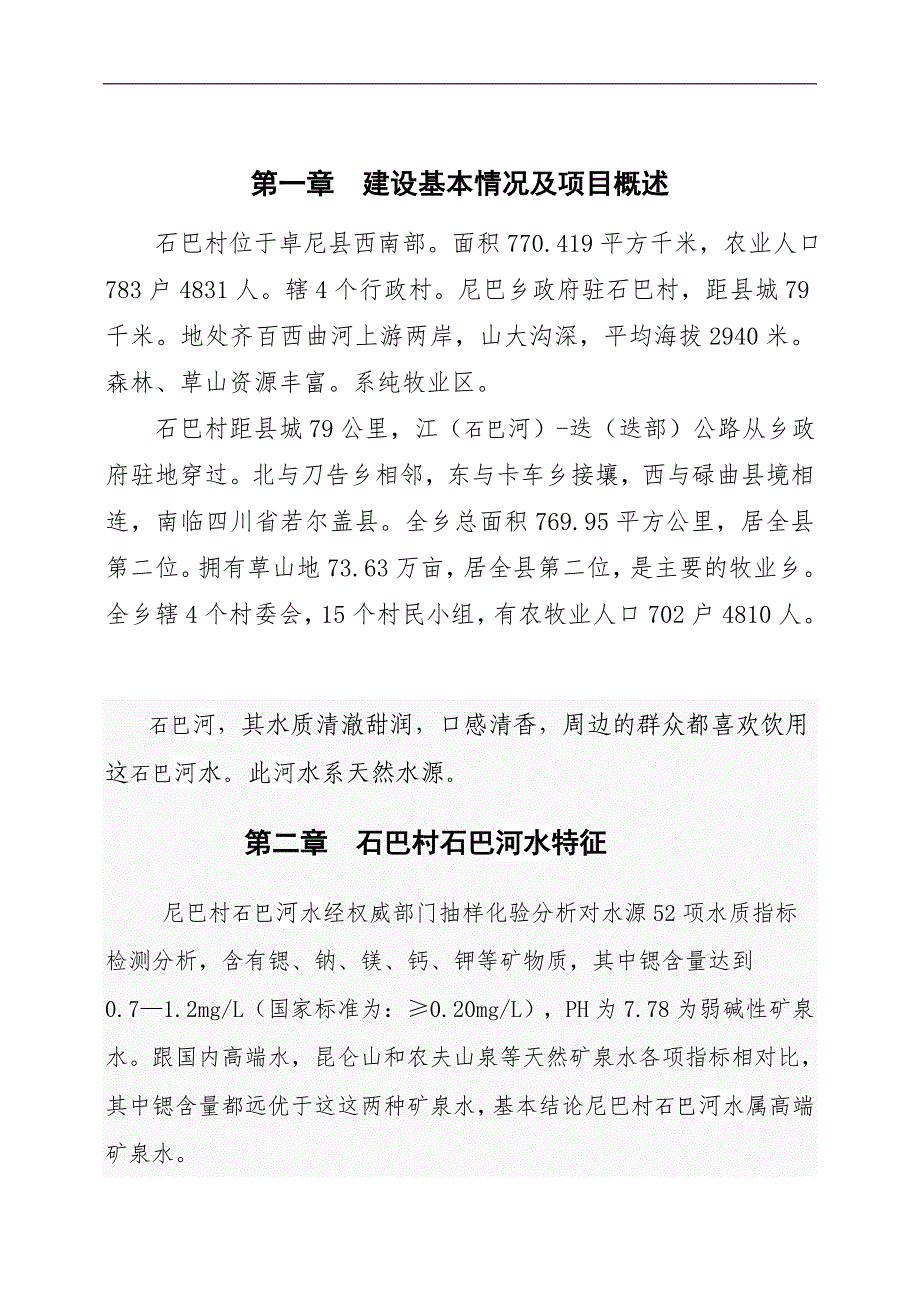 第一章　建设基本情况及项目概述
石巴村位于卓尼县西南部。面积 770.419 平方千米，农业人口
783 户 4831 人。辖 4 个行政村。尼巴乡政府驻石巴村，距县城 79
千米。地处齐百西曲河上游两岸，山大沟深，平均海拔 2940 米。
森林、草山资源丰富。系纯牧业区。
石巴村距县城 79 公里，江（石巴河）-迭（迭部）公路从乡政
府驻地穿过。北与刀告乡相邻，东与卡车乡接壤，西与碌曲县境相
连，南临四川省若尔盖县。全乡总面积 769.95 平方公里，居全县
第二位。拥有草山地 73.63 万亩，居全县第二位，是主要的牧业乡。
全乡辖 4 个村委会，15 个村民小组，有农牧业人口 702 户 4810 人。
石巴河，其水质清澈甜润，口感清香，周边的群众都喜欢饮用
这石巴河水。此河水系天然水源。
第二章　石巴村石巴河水特征
尼巴村石巴河水经权威部门抽样化验分析对水源 52 项水质指标
检测分析，含有锶、钠、镁、钙、钾等矿物质，其中锶含量达到
0.7—1.2mg/L（国家标准为：≥0.20mg/L），PH 为 7.78 为弱碱性矿泉
水。跟国内高端水，昆仑山和农夫山泉等天然矿泉水各项指标相对比，
其中锶含量都远优于这这两种矿泉水，基本结论尼巴村石巴河水属高端
矿泉水。